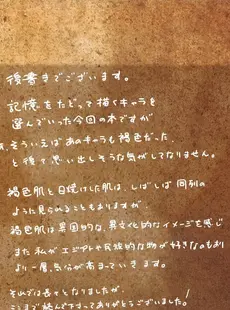 後書きでございます。
記憶をたどって描くキャラを
選んでいった今回の本ですが
そういえばあのキャラも褐色だった
と後々思い出しそうな気がしてなりません。
褐色肌と日焼けした肌は、しばしば同列の
ように見られることもありますが
褐色肌は異国的な、異文化的なイメージを感じ
また私がエジプトや民族的な物が好きなのもあり
より一層、気分が高まっていきます。
それでは長々となりましたが
ここまで読んで下さってありがとうございました!